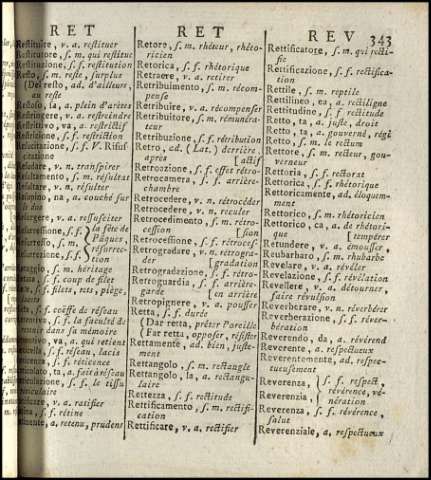 RET
RET
REV 343
Restituire, v. a. restituer
Restitutore, s. m. qui restitue
Restituzione, s. f. restitution
Resto, s. m. reste, surplus
(Del resto, ad. d'ailleurs,
au reste
a. plein d'arêtes
v. a. restreindre
va, a. restrictif
s. f. restriction
s. f. V. Risus
citazione
v. n. transpirer
s. m. résultat
v. n. résulter
na, a. couché sur
le dos
v. a. ressusciter
s. f.
s. m.
s. f.
la fête de
Pâques,
résurrec-
tion
s. m. héritage
s. f. coup de filet
s. f. filets, rets, piége,
s. f. coëffe de réseau
s. f. la faculté de
tenir dans sa mémoire
va, a. qui retient
s. f. réseau, lacis
s. f. réticence
ta, a. fait à réseau
s. f. le tissu
v. a. ratifier
s. f. rétine
a. retenu, prudent
Retore, s. m. rhéteur, rhéto-
ricien
Retorica, s. f. rhétorique
Retraere, v. a. retirer
Retribuimento, s. m. récom-
pense
Retribuire, v. a. récompenser
Retribuitore, s. m. rémunéra-
teur
Retribuzione, s. f. rétribution
Retro, ad. (Lat.) derriere,
après [actif
Retroazione, s. f. effet rétro-
Retrocamera, s. f. arriére-
chambre
Retrocedere, v. n. rétrocéder
Retrocedere, v. n. reculer
Retrocedimento, s. m. rétro-
cession [sion
Retrocessione, s. f. rétroces-
Retrogradare, v. n. rétrogra-
der [gradation
Retrogradazione, s. f. rétro-
Retroguardia, s. f. arriére-
garde [en arriére
Retropignere, v. a. pousser
Retta, s. f. durée
(Dar retta, prêter l'oreille
(Far retta, opposer, résister
Rettamente, ad. bien, juste-
ment
Rettangolo, s. m. rectangle
Rettangolo, la, a. rectangu-
laire
Rettezza, s. f. rectitude
Rettificamento, s. m. rectifi-
cation
Rettificare, v. a. rectifier
Rettificatore, s. m. qui recti-
fie
Rettificazione, s. f. rectifica-
tion
Rettile, s. m. reptile
Rettilineo, ea, a. rectiligne
Rettitudine, s. f. rectitude
Retto, ta, a. juste, droit
Retto, ta, a. gouverné, régi
Retto, s. m. le rectum
Rettore, s. m. recteur, gou-
verneur
Rettoria, s. f. rectorat
Rettorica, s. f. rhétorique
Rettoricamente, ad. éloquem-
ment
Rettorico, s. m. rhétoricien
Rettorico, ca, a. de rhétori-
que [tempérer
Retundere, v. a. émousser,
Reubarbaro, s. m. rhubarbe
Revelare, v. a. révéler
Revelazione, s. f. révélation
Revellere, v. a. détourner,
faire révulsion
Reverberare, v. n. réverbérer
Reverberazione, s. f. réver-
bération
Reverendo, da, a. révérend
Reverente, a. respectueux
Reverentemente, ad. respec-
tueusement
Reverenza,
Reverenzia,
s. f. respect,
révérence, vé-
nération
Reverenza, s. f. révérence,
salut
Reverenziale, a. respectueux